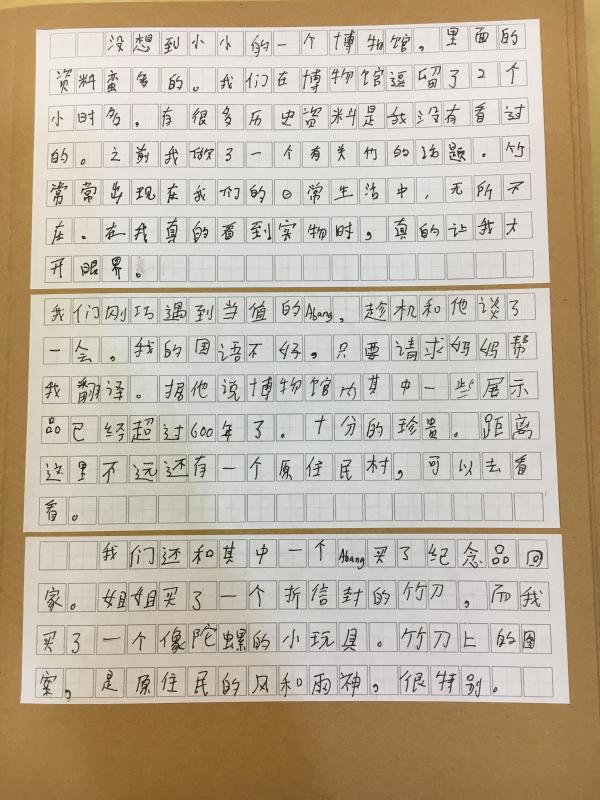 没想到小小的一个博物馆，里面的
资料蛮多的。我们在博物馆逗留了2个
小时多。有很多历史资料是我没有看过
的。之前我做了一个有关竹的话题。竹
常常出现在我们的日常生活中，无所不
在。在我真的看到实物时，真的让我大
开眼界。
我们刚巧遇到当值的Abang，趁机和他谈了
一会。我的国语不好，只要请求妈妈帮
我翻译。据他说博物馆内其中一些展示
品已经超过600年了。十分的珍贵。距离
这里不远还有一个原住民村，可以去看
看。
我们还和其中一个Abang买了纪念品回
家。姐姐买了一个折信封的竹刀，而我
买了一个像陀螺的小玩具。竹刀上的图
案，是原住民的风和雨神，很特别。